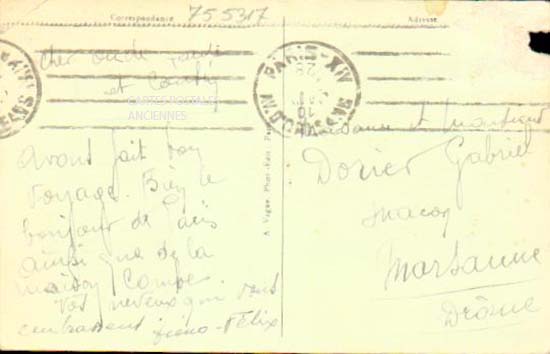 Correspondance
755317
Adresse
Cher oncle
et
CARTES POSTALES
ANCIENNES
PARIS - XIV
Ayant fait bon
voyage. Bien le
bonjour de Paris
ainsi que de la
maison
Vos neveux qui vous
embrassent - Félix
A. Vague, Phot.-Edit.
PARIS - XIV
Madame et Monsieur
Dorier Gabriel
maçon
Marsanne
Drôme